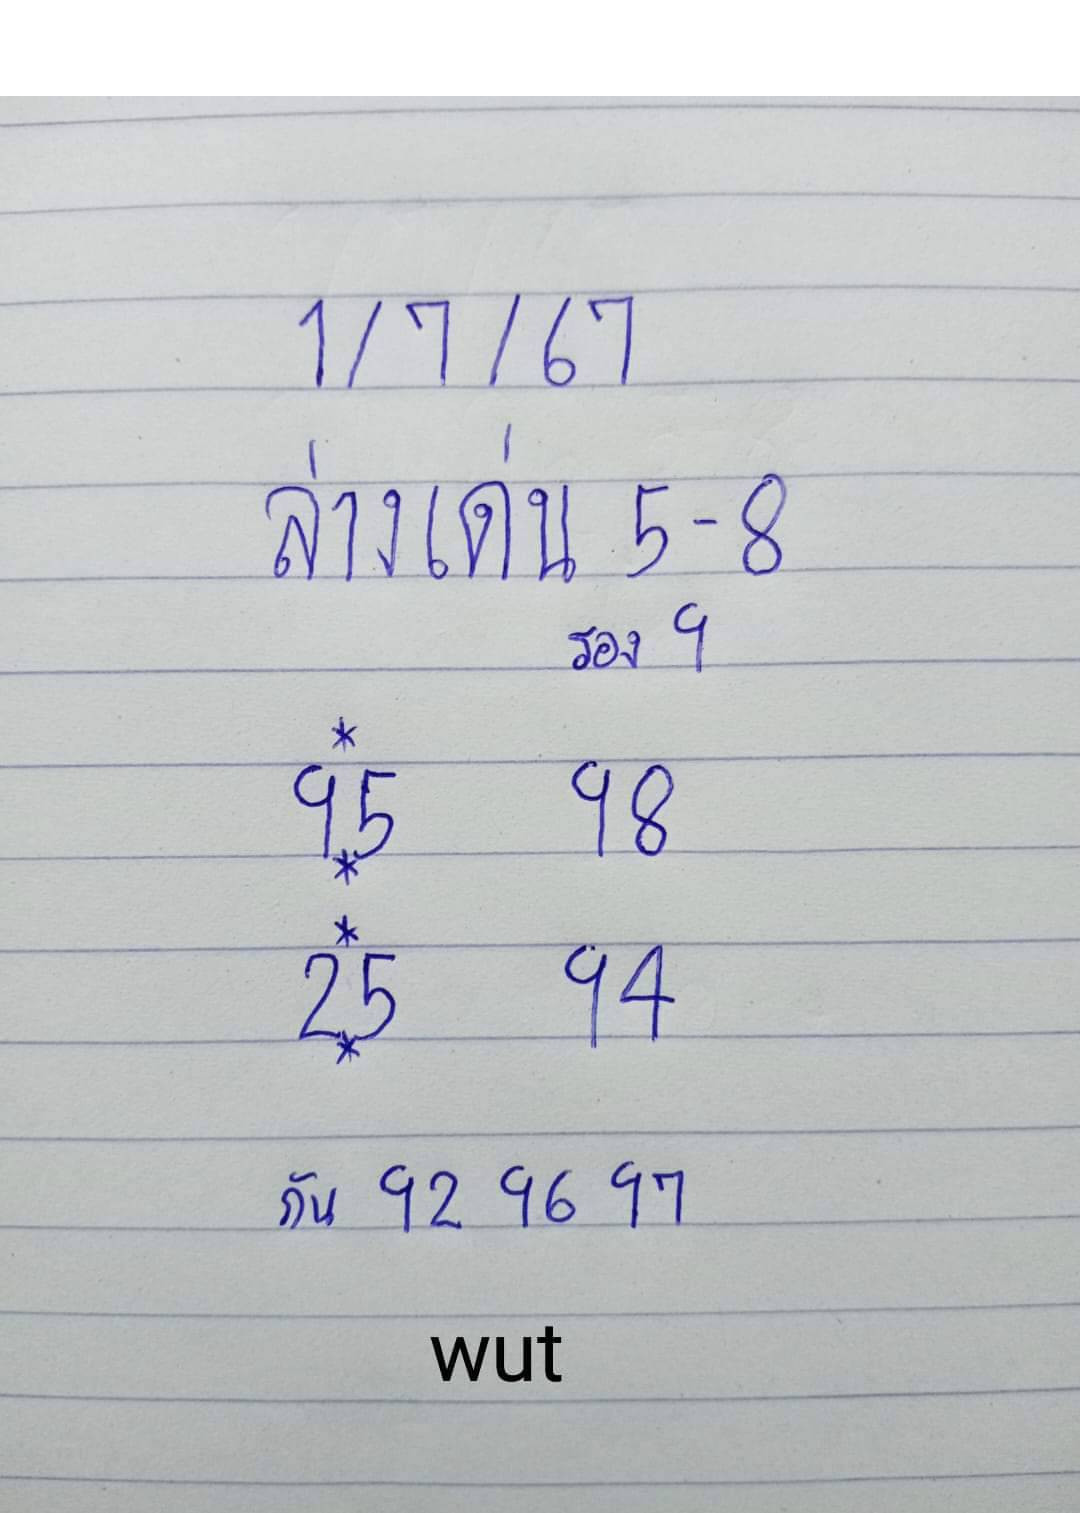 1/7/67
ล่างเด่น 5-8
รอง 9
*
95 98
*
*
25 94
*
กัน 92 96 97
wut